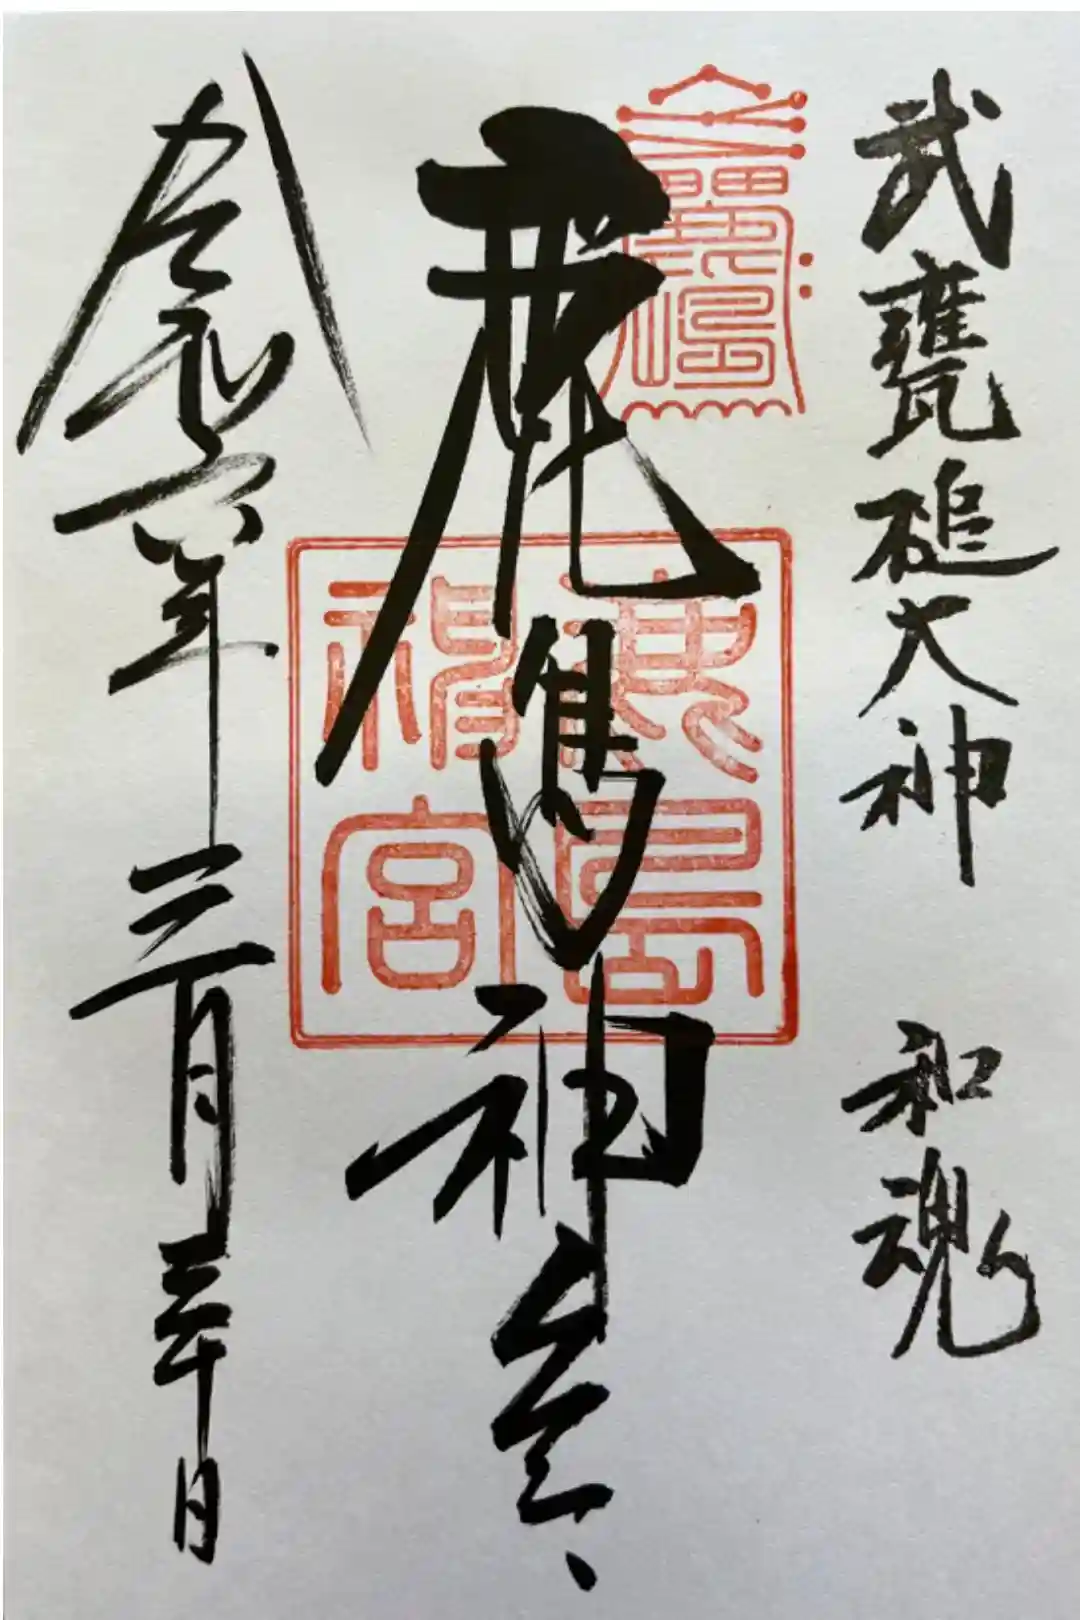 武甕槌大神 和魂
鹿島神宮
鹿島
神宮
令和六年三月三十日